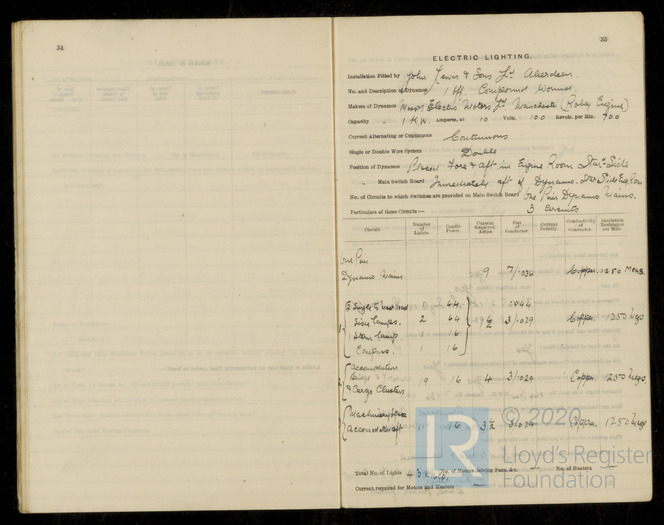 34
35
ELECTRIC LIGHTING.
Installation Fitted by John Lewis & Sons Ltd Aberdeen.
No. and Description of Dynamos 1 Off. Compound Wound.
Makers of Dynamos Electric Motors Ltd Manchester (Robey Engine)
Capacity 1 K.W. Amperes, at 10 Volts, 100 Revols. per Min. 900
Current Alternating or Continuous Continuous
Single or Double Wire System Double
Position of Dynamos Placed Fore & aft in Engine Room Star. Side
" Main Switch Board Immediately aft of Dynamo. Star Side Eng Room
No. of Circuits to which Switches are provided on Main Switch Board One Pair Dynamo Mains.
3 Circuits
Particulars of these Circuits:—
Circuit. Number of Lights. Candle Power. Current Required Amps. Size of Conductor. Current Density. Conductivity of Conductor. Insulation Resistance per Mile.
One Pair
Dynamo Mains 9 7/.036 Copper. 1250 Megs.
64 .044
Side Lamps. 2 64 3/.029 Copper. 1250 Megs
1 Stern Lamp 1 16
Compass. 1 16
Accomodation
& Cargo Clusters 19 16 4 3/.029 Copper. 1250 Megs.
Machinery Space
Accomodation aft 16 3½ 3/.029 Copper. 1250 Megs
Total No. of Lights No. of Motors driving Fans, &c. No. of Heaters
Current required for Motors and Heaters
© 2020
LR
Lloyd's Register
Foundation